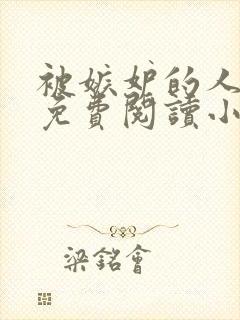 被嫉妒的人
免費閱讀小
梁銘會